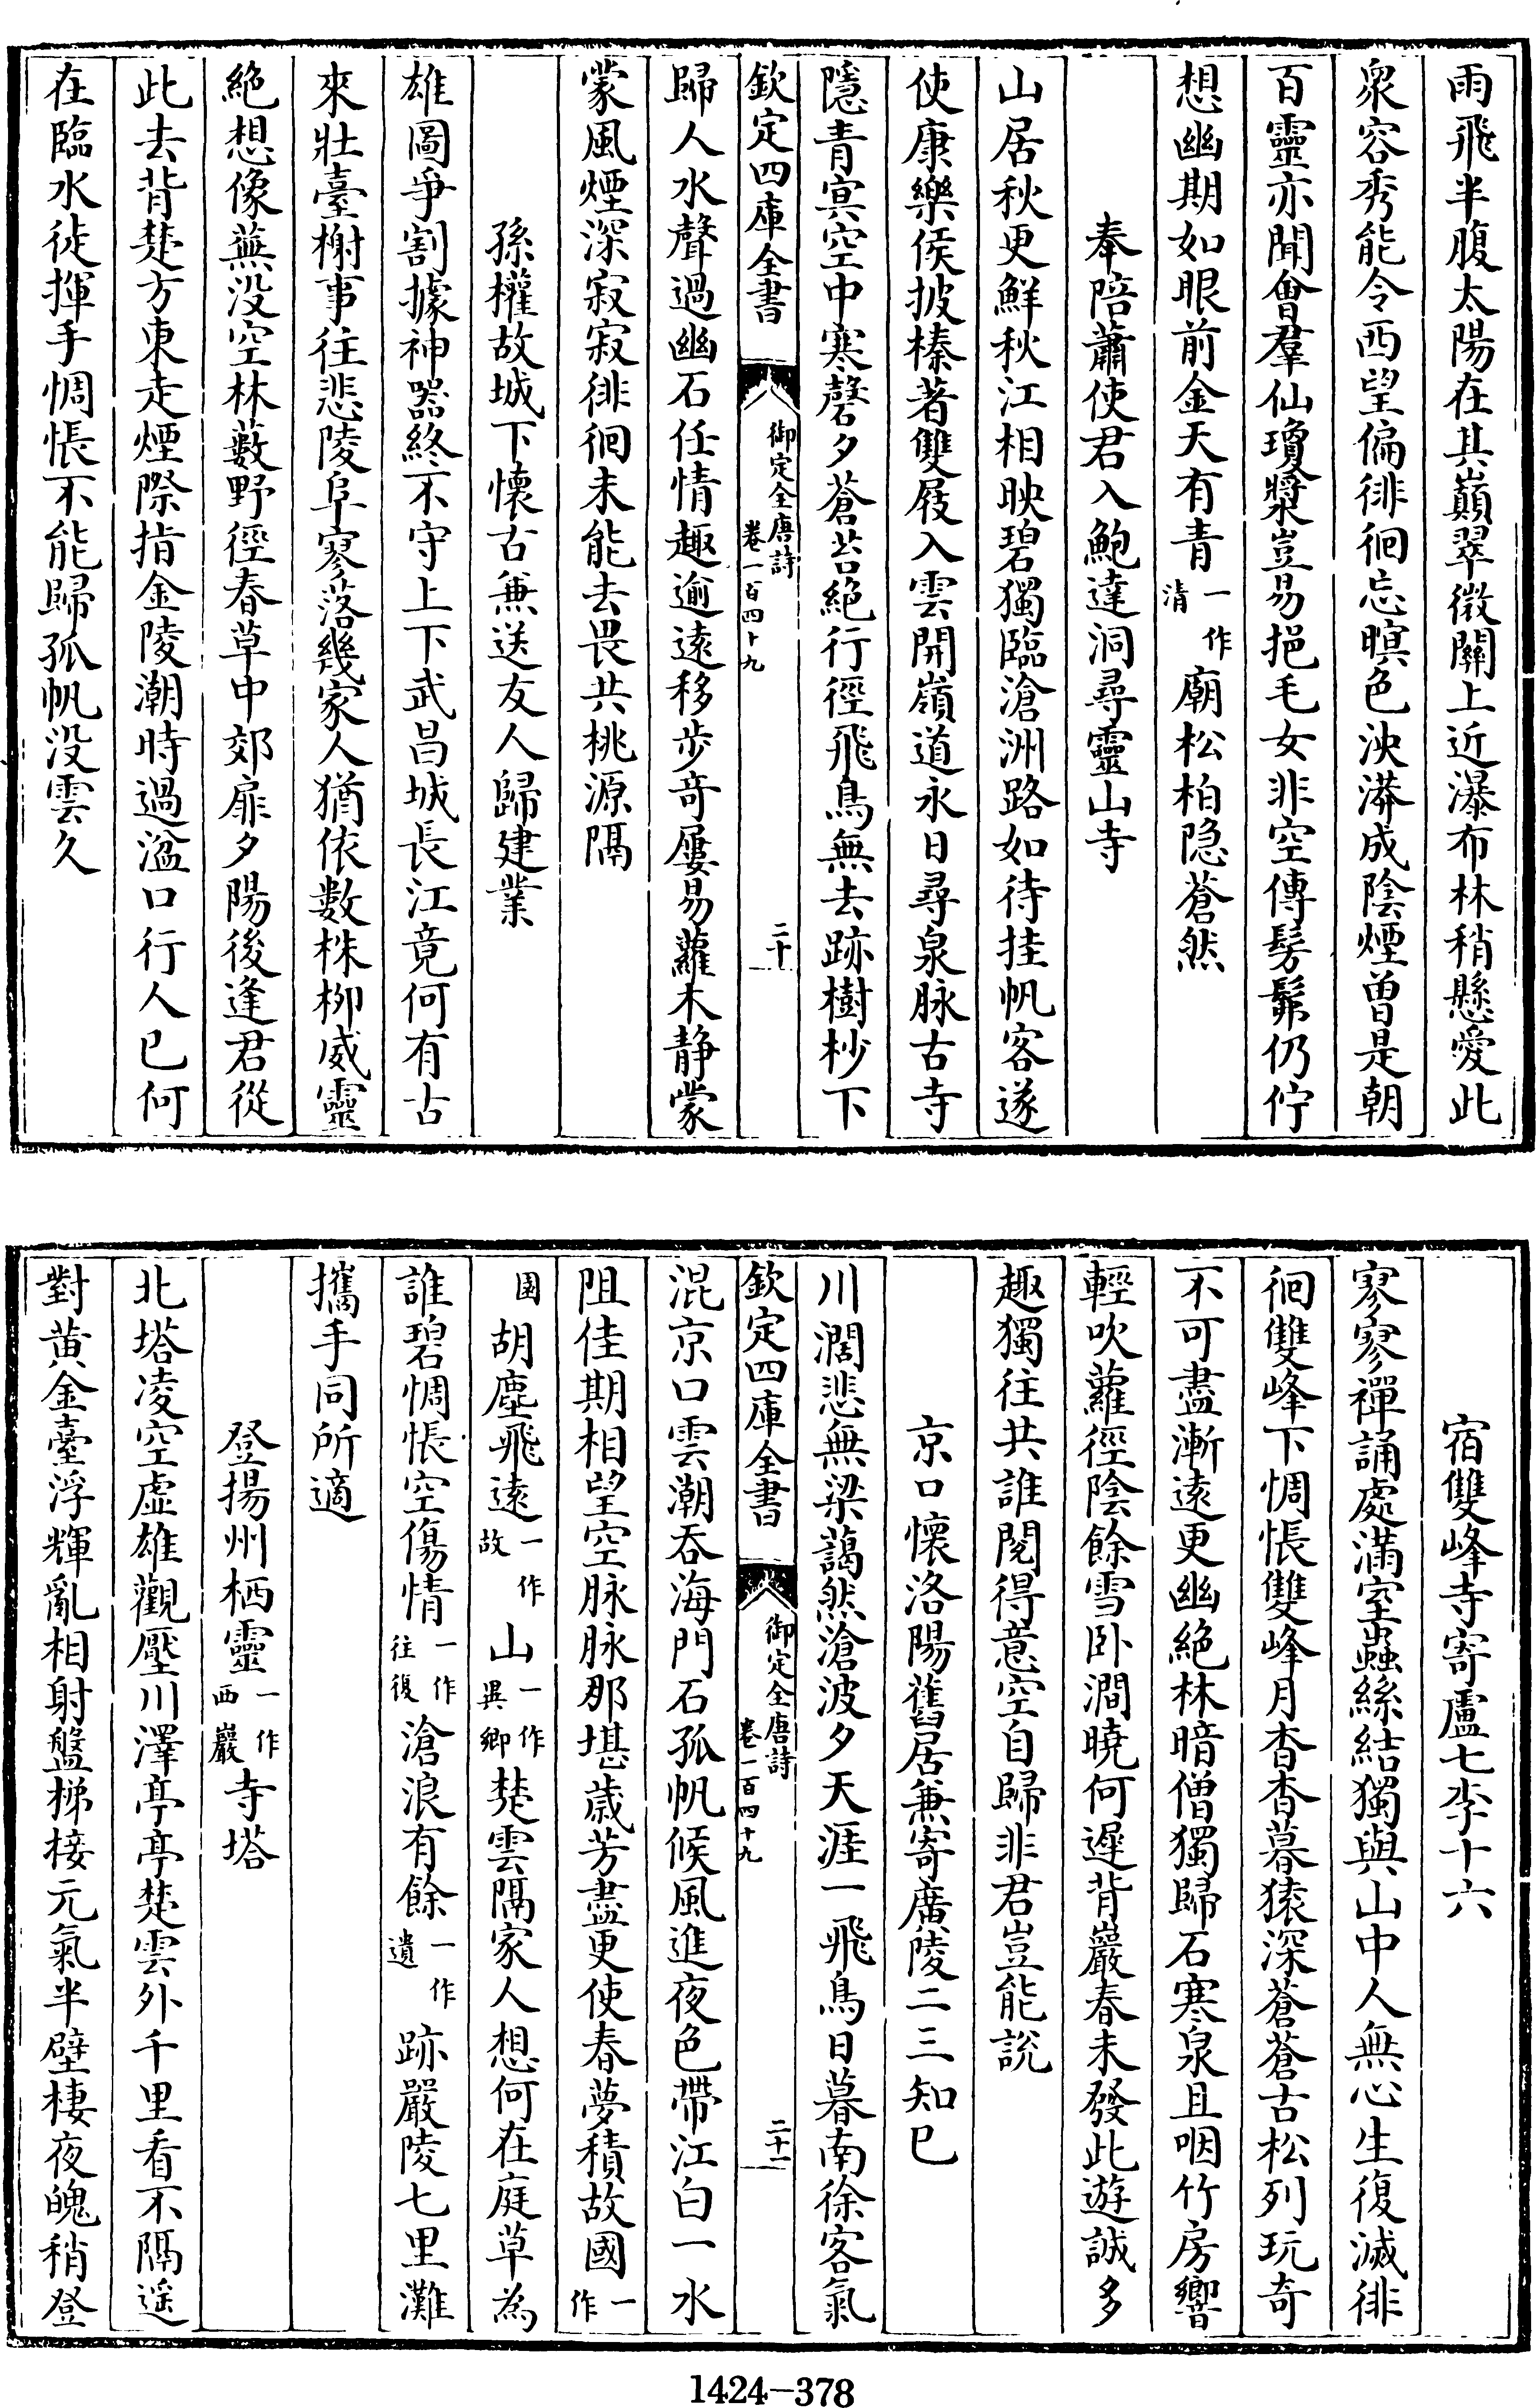 雨飛半腹太陽在其巔翠微關上近瀑布林稍懸愛此
衆容秀能令西望偏徘徊忘暝色泱漭成陰煙曽是朝
百靈亦聞會羣仙瓊漿豈易挹毛女非空傳髣髴仍佇
想幽期如眼前金天有青一作清廟松柏隐蒼然
奉陪蕭使君入鮑達洞尋靈山寺
山居秋更鮮秋江相映碧獨臨滄洲路如待挂帆客遂
使康樂侯披榛著雙屐入雲開嶺道永日尋泉脉古寺
隱青冥空中寒磬夕蒼苔絕行徑飛鳥無去跡樹杪下
欽定四庫全書 御定全唐詩 卷一百四十九 二十
歸人水聲過幽石任情趣逾遠移步竒屢易蘿木靜蒙
蒙風煙深寂寂徘徊未能去畏共桃源隔
孫權故城下懷古兼送友人歸建業
雄圖爭割據神器終不守上下武昌城長江竟何有古
來壯臺榭事往悲陵阜寥落幾家人猶依數株栁威靈
絕想像蕪没空林藪野徑春草中郊扉夕陽後逢君從
此去背楚方東走煙際指金陵潮時過湓口行人已何
在臨水徒揮手惆悵不能歸孤帆没雲久
宿雙峰寺寄盧七李十六
寥寥禪誦處滿室蟲絲結獨與山中人無心生復滅徘
徊雙峰下惆悵雙峰月杳杳暮猿深蒼蒼古松列玩奇
不可盡漸遠更幽絕林暗僧獨歸石寒泉且咽竹房響
輕吹蘿徑陰餘雪卧澗曉何遲背巖春未發此遊誠多
趣獨往共誰閱得意空自歸非君豈能說
京口懷洛陽舊居兼寄廣陵二三知已
川濶悲無梁藹然滄波夕天涯一飛鳥日暮南徐客氣
欽定四庫全書 御定全唐詩 卷一百四十九 二十一
混京口雲潮吞海門石孤帆候風進夜色帶江白一水
阻佳期相望空脉脉那堪歲芳盡更使春夢積故國一作
園胡塵飛遠一作故山一作異鄉楚雲隔家人想何在庭草為
誰碧惆悵空傷情一作往復滄浪有餘一作遺跡嚴陵七里灘
攜手同所適
登揚州栖靈一作西巖寺塔
北塔凌空虚雄觀壓川澤亭亭楚雲外千里看不隔遥
對黄金臺浮輝亂相射盤梯接元氣半壁棲夜魄稍登
1424-378